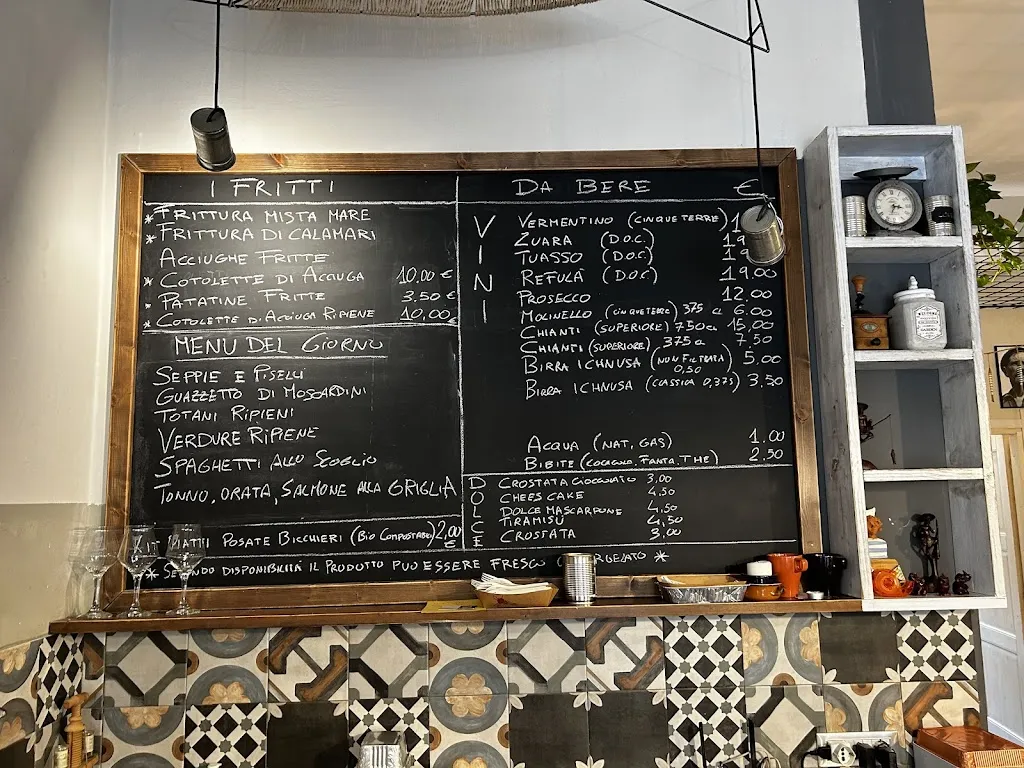 I FRITTI
* FRITTURA MISTA MARE
* FRITTURA DI CALAMARI
ACCIUGHE FRITTE
* COTOLETTE DI ACCIUGA 10.00 €
* PATATINE FRITTE 3.50 €
* COTOLETTE DI ACCIUGA RIPIENE 10,00 €
MENU DEL GIORNO
SEPPIE E PISELLI
GUAZZETTO DI MOSCARDINI
TOTANI RIPIENI
VERDURE RIPIENE
SPAGHETTI ALLO SCOGLIO
TONNO, ORATA, SALMONE ALLA GRIGLIA
KIT PIATTI POSATE BICCHIERI (BIO COMPOSTABILI) 2,00 €
* SECONDO DISPONIBILITÁ IL PRODOTTO PUO ESSERE FRESCO *
DA BERE €
VINI
VERMENTINO (CINQUE TERRE)
ZUARA (D.O.C.)
TUASSO (D.O.C.)
REFULÁ (D.O.C.) 19.00
PROSECCO 12.00
(CINQUETERRE) 375 cl 6.00
CHIANTI (SUPERIORE) 750cl 15,00
CHIANTI (SUPERIORE) 375cl 7.50
BIRRA ICHNUSA (NON FILTRATA 0,50) 5.00
BIRRA ICHNUSA (CLASSICA 0,375) 3.50
ACQUA (NAT, GAS) 1.00
BIBITE (COCACOLA, FANTA, THE) 2.50
DOLCE
CROSTATA CIOCCOLATO 3,00
CHEES CAKE 4,50
DOLCE MASCARPONE 4,50
TIRAMISÚ 4,50
CROSTATA 3,00